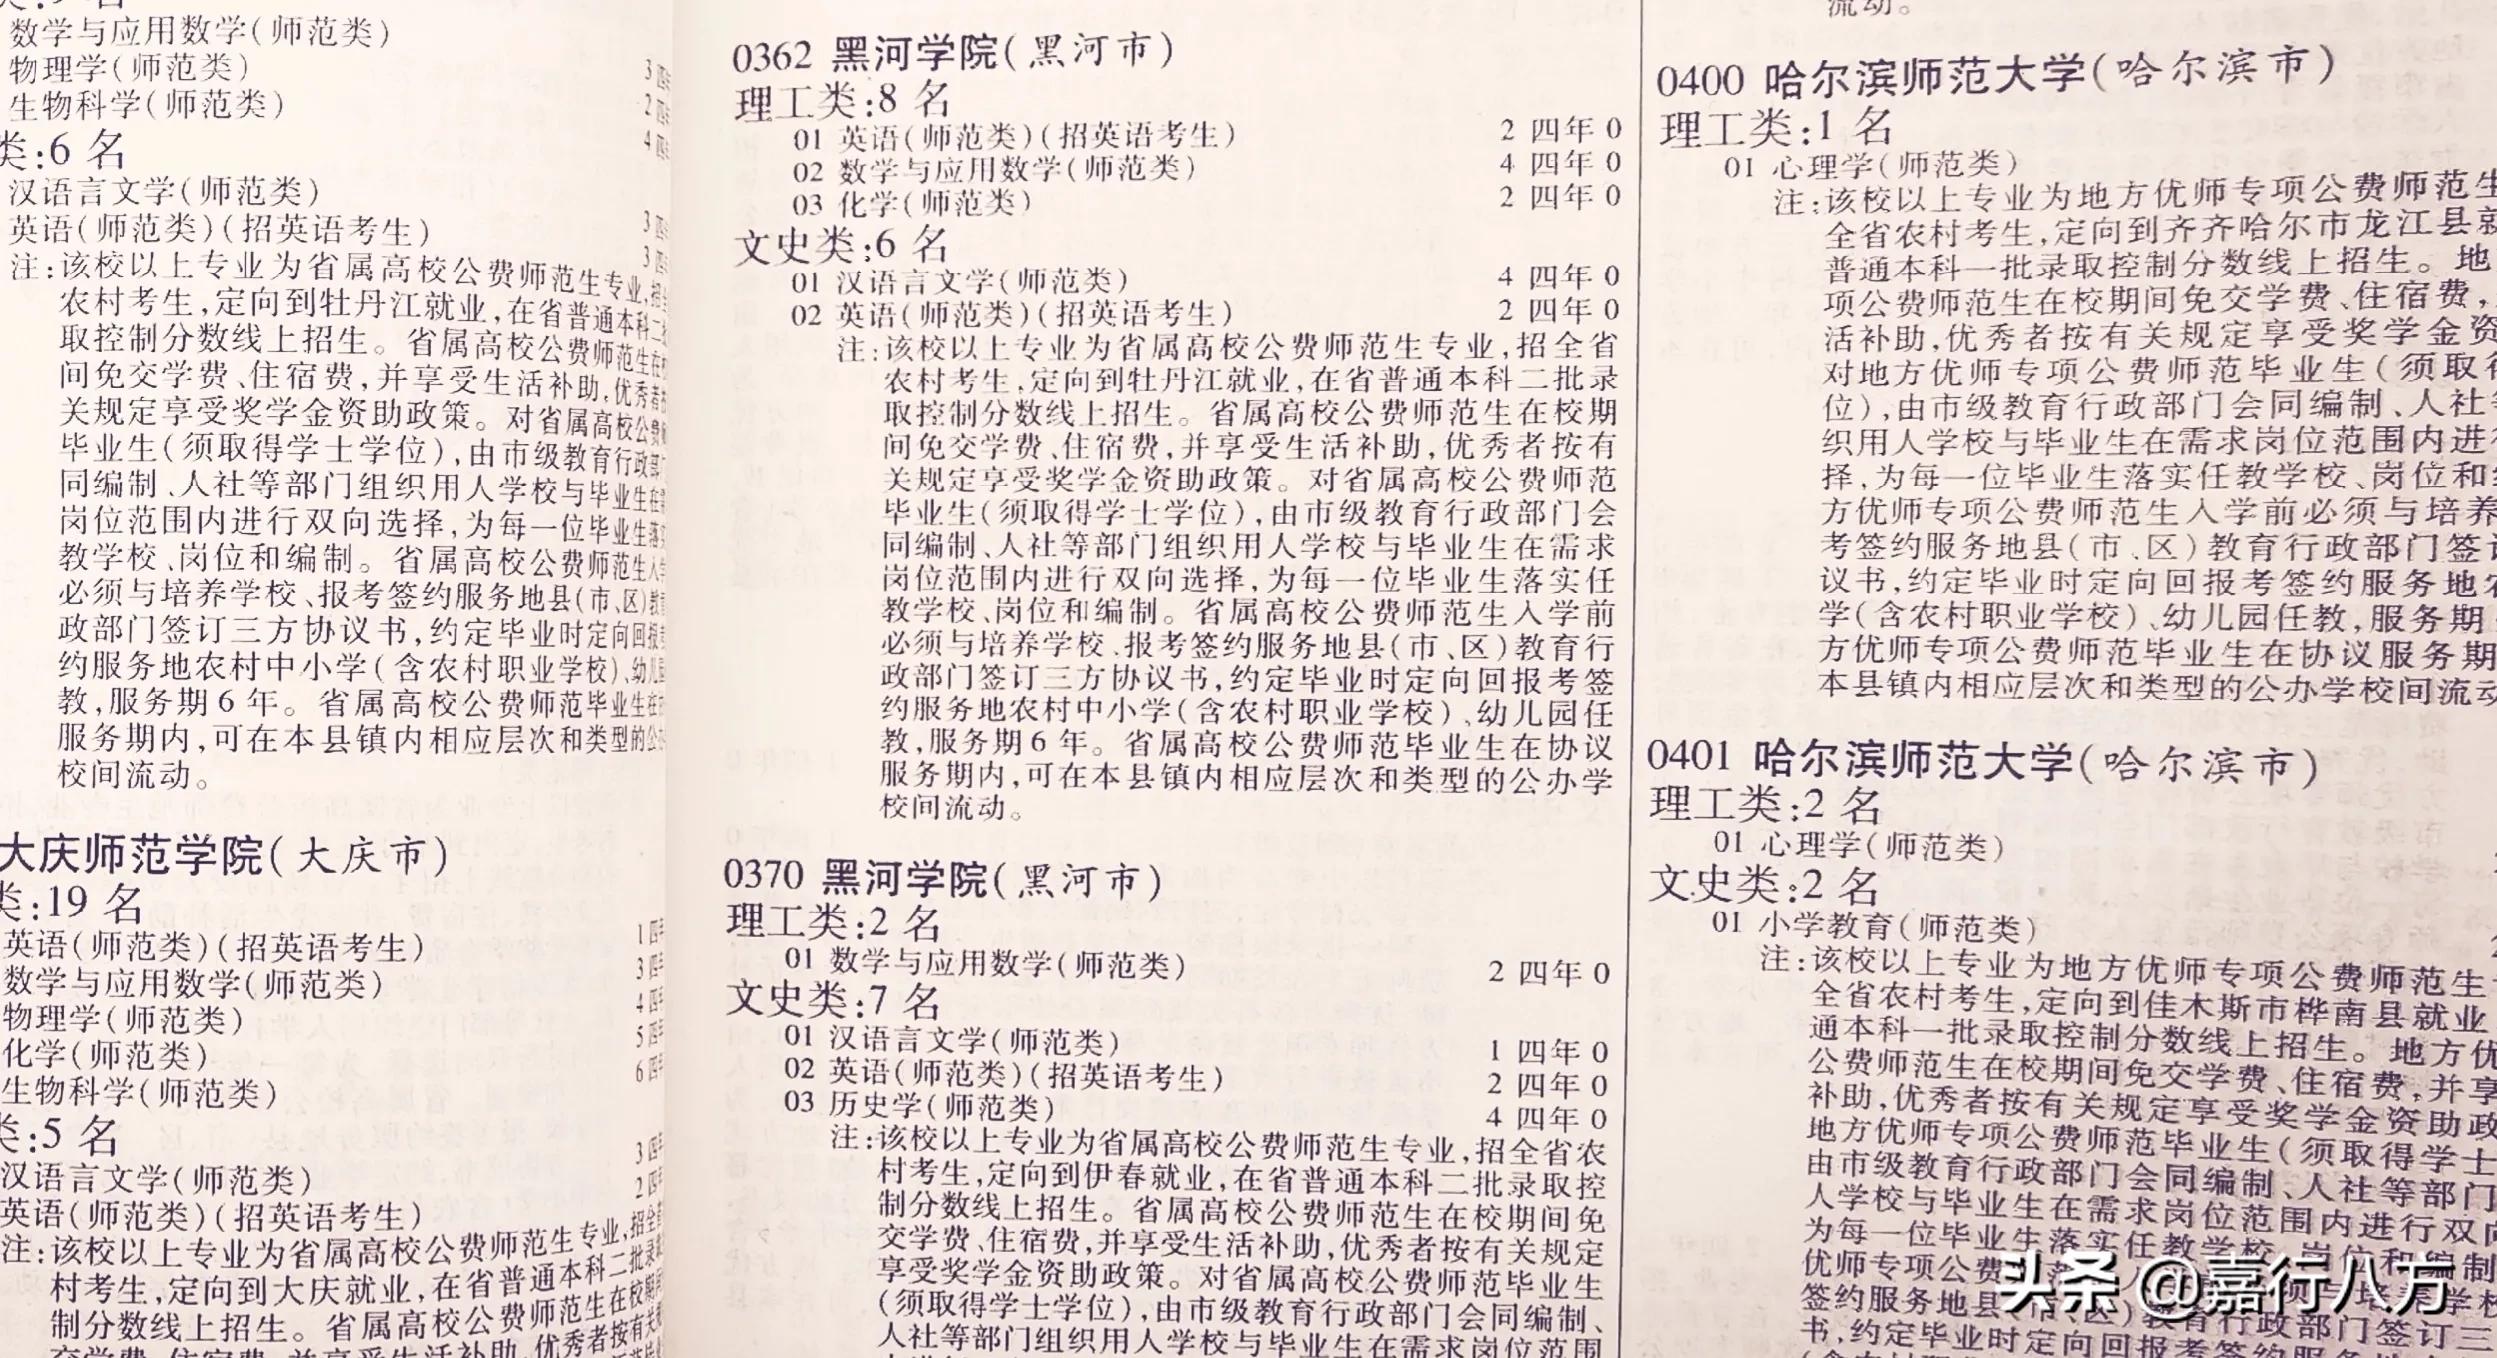 数学与应用数学(师范类)
物理学(师范类) 3
生物科学(师范类) 2
4
类:6 名
汉语言文学(师范类)
英语(师范类)(招英语考生) 3
3
注:该校以上专业为省属高校公费师范生专业,招
农村考生,定向到牡丹江就业,在省普通本科二
取控制分数线上招生。省属高校公费师范生在校
间免交学费、住宿费,并享受生活补助,优秀者按
关规定享受奖学金资助政策。对省属高校公费
毕业生(须取得学士学位),由市级教育行政部
同编制、人社等部门组织用人学校与毕业生在需
岗位范围内进行双向选择,为每一位毕业生落实
教学校、岗位和编制。省属高校公费师范生入学
必须与培养学校、报考签约服务地县(市、区)教
政部门签订三方协议书,约定毕业时定向回报
约服务地农村中小学(含农村职业学校)、幼儿园
教,服务期6年。省属高校公费师范毕业生在
服务期内,可在本县镇内相应层次和类型的公办
校间流动。
大庆师范学院(大庆市)
类:19 名
英语(师范类)(招英语考生) 1
数学与应用数学(师范类) 3
物理学(师范类) 4
化学(师范类) 5
生物科学(师范类) 6
类:5 名
汉语言文学(师范类) 3
英语(师范类)(招英语考生) 2
注:该校以上专业为省属高校公费师范生专业,招全
村考生,定向到大庆就业,在省普通本科二批录
制分数线上招生。省属高校公费师范生在校期
交学费、住宿费,并享受生活补助,优秀者按有关
0362 黑河学院(黑河市)
理工类:8 名
01 英语(师范类)(招英语考生) 2 四年 0
02 数学与应用数学(师范类) 4 四年 0
03 化学(师范类) 2 四年 0
文史类:6 名
01 汉语言文学(师范类) 4 四年 0
02 英语(师范类)(招英语考生) 2 四年 0
注:该校以上专业为省属高校公费师范生专业,招全省
农村考生,定向到牡丹江就业,在省普通本科二批录
取控制分数线上招生。省属高校公费师范生在校期
间免交学费、住宿费,并享受生活补助,优秀者按有
关规定享受奖学金资助政策。对省属高校公费师范
毕业生(须取得学士学位),由市级教育行政部门会
同编制、人社等部门组织用人学校与毕业生在需求
岗位范围内进行双向选择,为每一位毕业生落实任
教学校、岗位和编制。省属高校公费师范生入学前
必须与培养学校、报考签约服务地县(市、区)教育行
政部门签订三方协议书,约定毕业时定向回报考签
约服务地农村中小学(含农村职业学校)、幼儿园任
教,服务期6年。省属高校公费师范毕业生在协议
服务期内,可在本县镇内相应层次和类型的公办学
校间流动。
0370 黑河学院(黑河市)
理工类:2 名
01 数学与应用数学(师范类) 2 四年 0
文史类:7 名
01 汉语言文学(师范类) 1 四年 0
02 英语(师范类)(招英语考生) 2 四年 0
03 历史学(师范类) 4 四年 0
注:该校以上专业为省属高校公费师范生专业,招全省农
村考生,定向到伊春就业,在省普通本科二批录取控
制分数线上招生。省属高校公费师范生在校期间免
交学费、住宿费,并享受生活补助,优秀者按有关规定
享受奖学金资助政策。对省属高校公费师范毕业生
(须取得学士学位),由市级教育行政部门会同编制、
人社等部门组织用人学校与毕业生在需求岗位范围
流动。
0400 哈尔滨师范大学(哈尔滨市)
理工类:1 名
01 心理学(师范类)
注:该校以上专业为地方优师专项公费师范生
全省农村考生,定向到齐齐哈尔市龙江县就
普通本科一批录取控制分数线上招生。地
项公费师范生在校期间免交学费、住宿费,
活补助,优秀者按有关规定享受奖学金资
对地方优师专项公费师范毕业生(须取得
位),由市级教育行政部门会同编制、人社等
织用人学校与毕业生在需求岗位范围内进行
择,为每一位毕业生落实任教学校、岗位和
方优师专项公费师范生入学前必须与培养
考签约服务地县(市、区)教育行政部门签订
议书,约定毕业时定向回报考签约服务地农
学(含农村职业学校)、幼儿园任教,服务期
方优师专项公费师范毕业生在协议服务期
本县镇内相应层次和类型的公办学校间流动
0401 哈尔滨师范大学(哈尔滨市)
理工类:2 名
01 心理学(师范类)
文史类:2 名
01 小学教育(师范类)
注:该校以上专业为地方优师专项公费师范生
全省农村考生,定向到佳木斯市桦南县就业
通本科一批录取控制分数线上招生。地方优
公费师范生在校期间免交学费、住宿费,并享
补助,优秀者按有关规定享受奖学金资助政
地方优师专项公费师范毕业生(须取得学士
由市级教育行政部门会同编制、人社等部门
人学校与毕业生在需求岗位范围内进行双向
为每一位毕业生落实任教学校、岗位和编制
优师专项公费师范 学校
签约服务地县(市、区)教育行政部门签订三
书,约定毕业时定向回报考签约服务地
头条 @嘉行八方